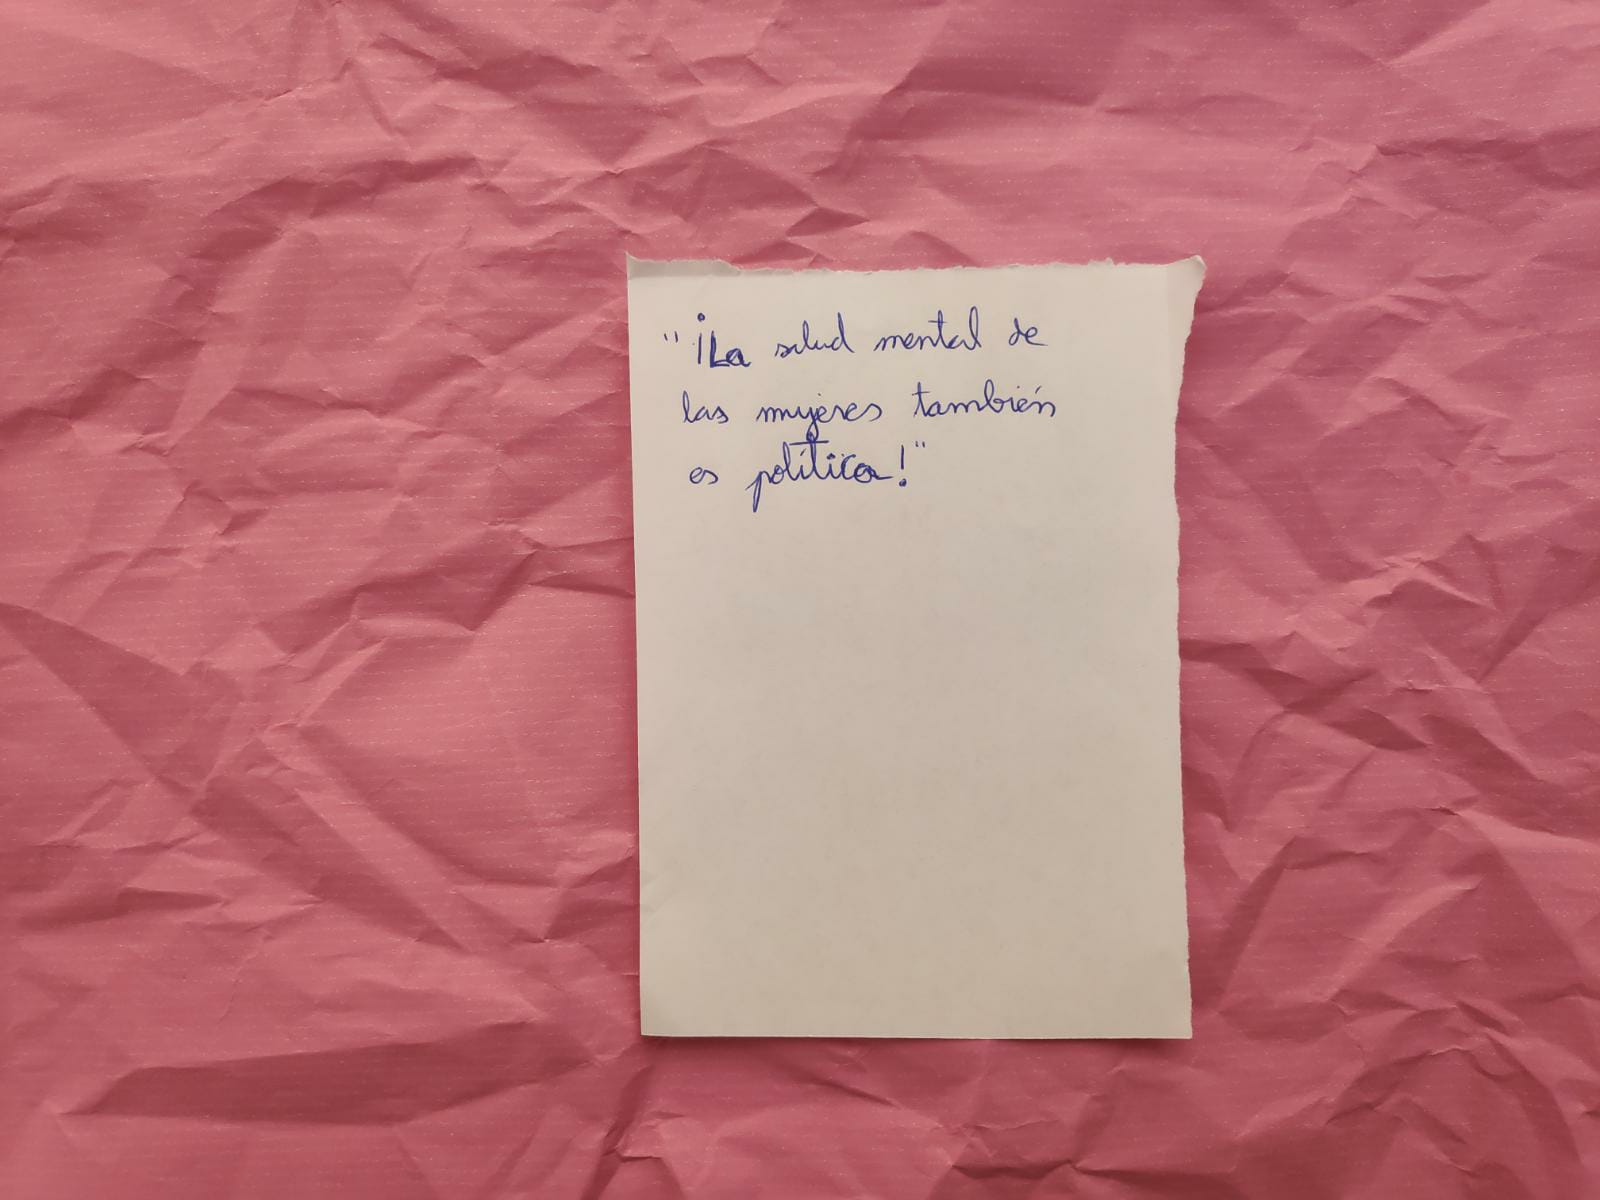 "¡La salud mental de
las mujeres también
es política!"